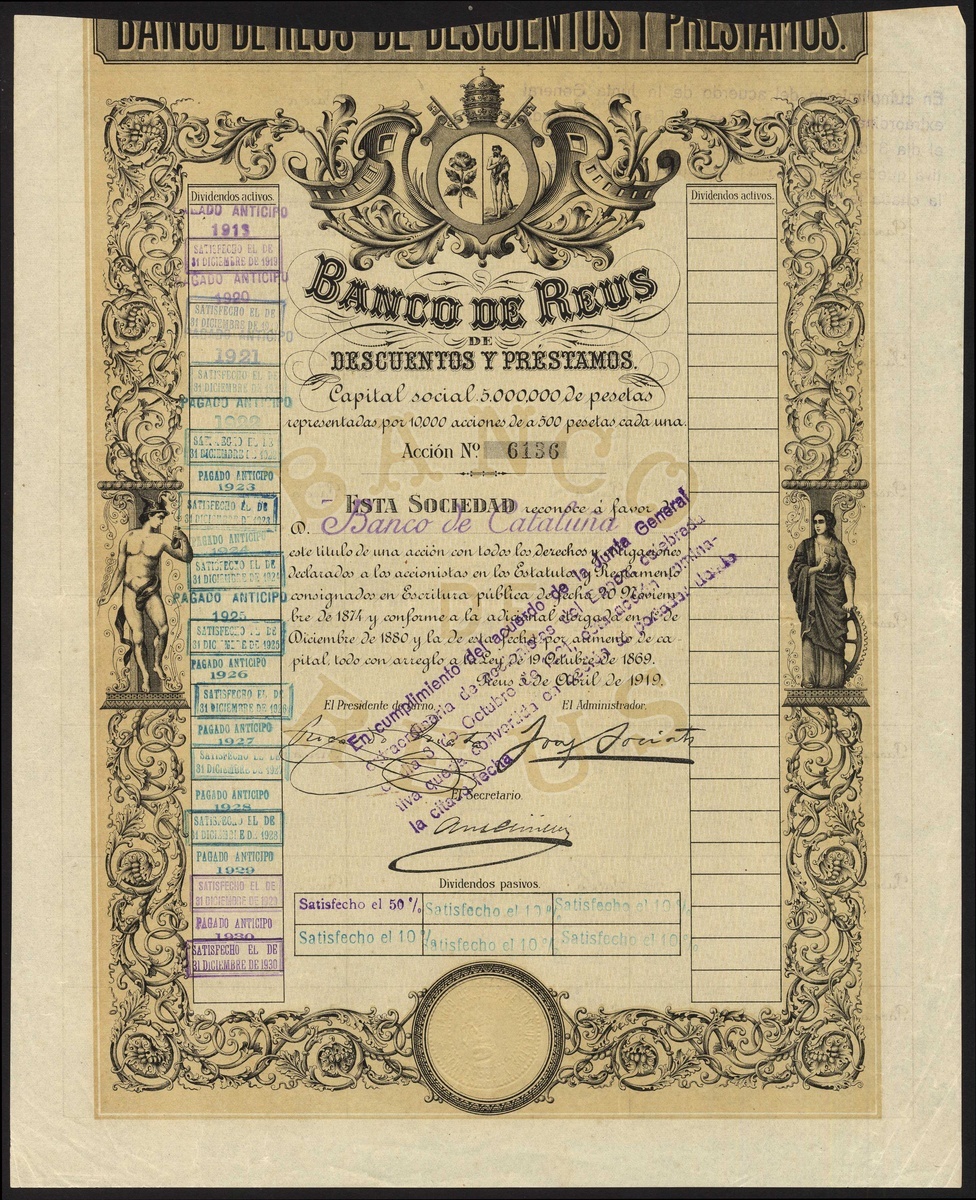 BANCO DE REUS DE DESCUENTOS Y PRÉSTAMOS.
BANCO DE REUS
DE
DESCUENTOS Y PRÉSTAMOS.
Capital social 5.000,000 de pesetas
representadas por 10000 acciones de a 500 pesetas cada una.
Acción Nº 6136
ESTA SOCIEDAD reconoce á favor de
D. Banco de Cataluña
este titulo de una acción con todos los derechos y obligaciones
declarados a los accionistas en los Estatutos y Reglamento
consignados en Escritura pública de fecha 20 Noviem-
bre de 1874 y conforme a la adicional otorgada en de
Diciembre de 1880 y la de esta fecha por aumento de ca-
pital, todo con arreglo a la Ley de 19 Octubre de 1869.
Reus 5 de Abril de 1919.
El Presidente de turno.
El Administrador.
El Secretario.
En cumplimiento del acuerdo de la Junta General
extraordinaria de accionistas del Banco celebrada
el dia 31 de Octubre de la acción nomina-
tiva queda convertida en acción al portador desde
la citada fecha
Dividendos activos.
PAGADO ANTICIPO
1913
SATISFECHO EL DE
31 DICIEMBRE DE 1919
PAGADO ANTICIPO
1920
SATISFECHO EL DE
31 DICIEMBRE DE
PAGADO ANTICIPO
1921
SATISFECHO EL DE
31 DICIEMBRE DE
PAGADO ANTICIPO
1922
SATISFECHO EL DE
31 DICIEMBRE DE
PAGADO ANTICIPO
1923
SATISFECHO EL DE
31 DICIEMBRE DE 1923
PAGADO ANTICIPO
1924
SATISFECHO EL DE
31 DICIEMBRE DE 1924
PAGADO ANTICIPO
1925
SATISFECHO EL DE
31 DICIEMBRE DE 1925
PAGADO ANTICIPO
1926
SATISFECHO EL DE
31 DICIEMBRE DE 1926
PAGADO ANTICIPO
1927
SATISFECHO EL DE
31 DICIEMBRE DE 1927
PAGADO ANTICIPO
1928
SATISFECHO EL DE
31 DICIEMBRE DE 1928
PAGADO ANTICIPO
1929
SATISFECHO EL DE
31 DICIEMBRE DE 1929
PAGADO ANTICIPO
1930
SATISFECHO EL DE
31 DICIEMBRE DE 1930
Dividendos activos.
Dividendos pasivos.
Satisfecho el 50 % Satisfecho el 10 % Satisfecho el 10 %
Satisfecho el 10 % Satisfecho el 10 % Satisfecho el 10 %
BANCO
DE
REUS